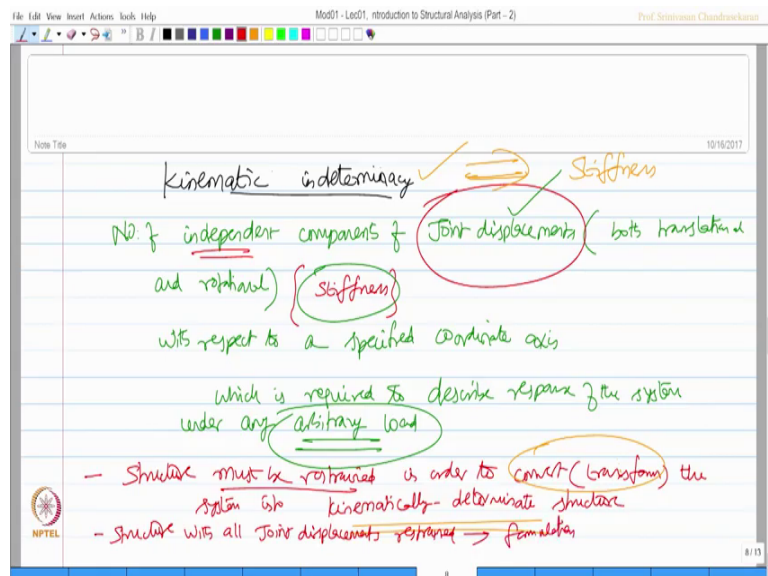 File Edit View Insert Actions Tools Help
Mod01 - Lec01, ntroduction to Structural Analysis (Part – 2)
Prof. Srinivasan Chandrasekaran
B I
Note Title
10/16/2017
Kinematic indeterminacy ⇒ Stiffness
No. of independent components of Joint displacements (both translational
and rotational) {Stiffness}
with respect to a specified coordinate axis
which is required to describe response of the system
under any arbitrary load
- Structure must be restrained in order to convert (transform) the
system into kinematically-determinate structure
- Structure with all joint displacements restrained →
NPTEL
8 / 13